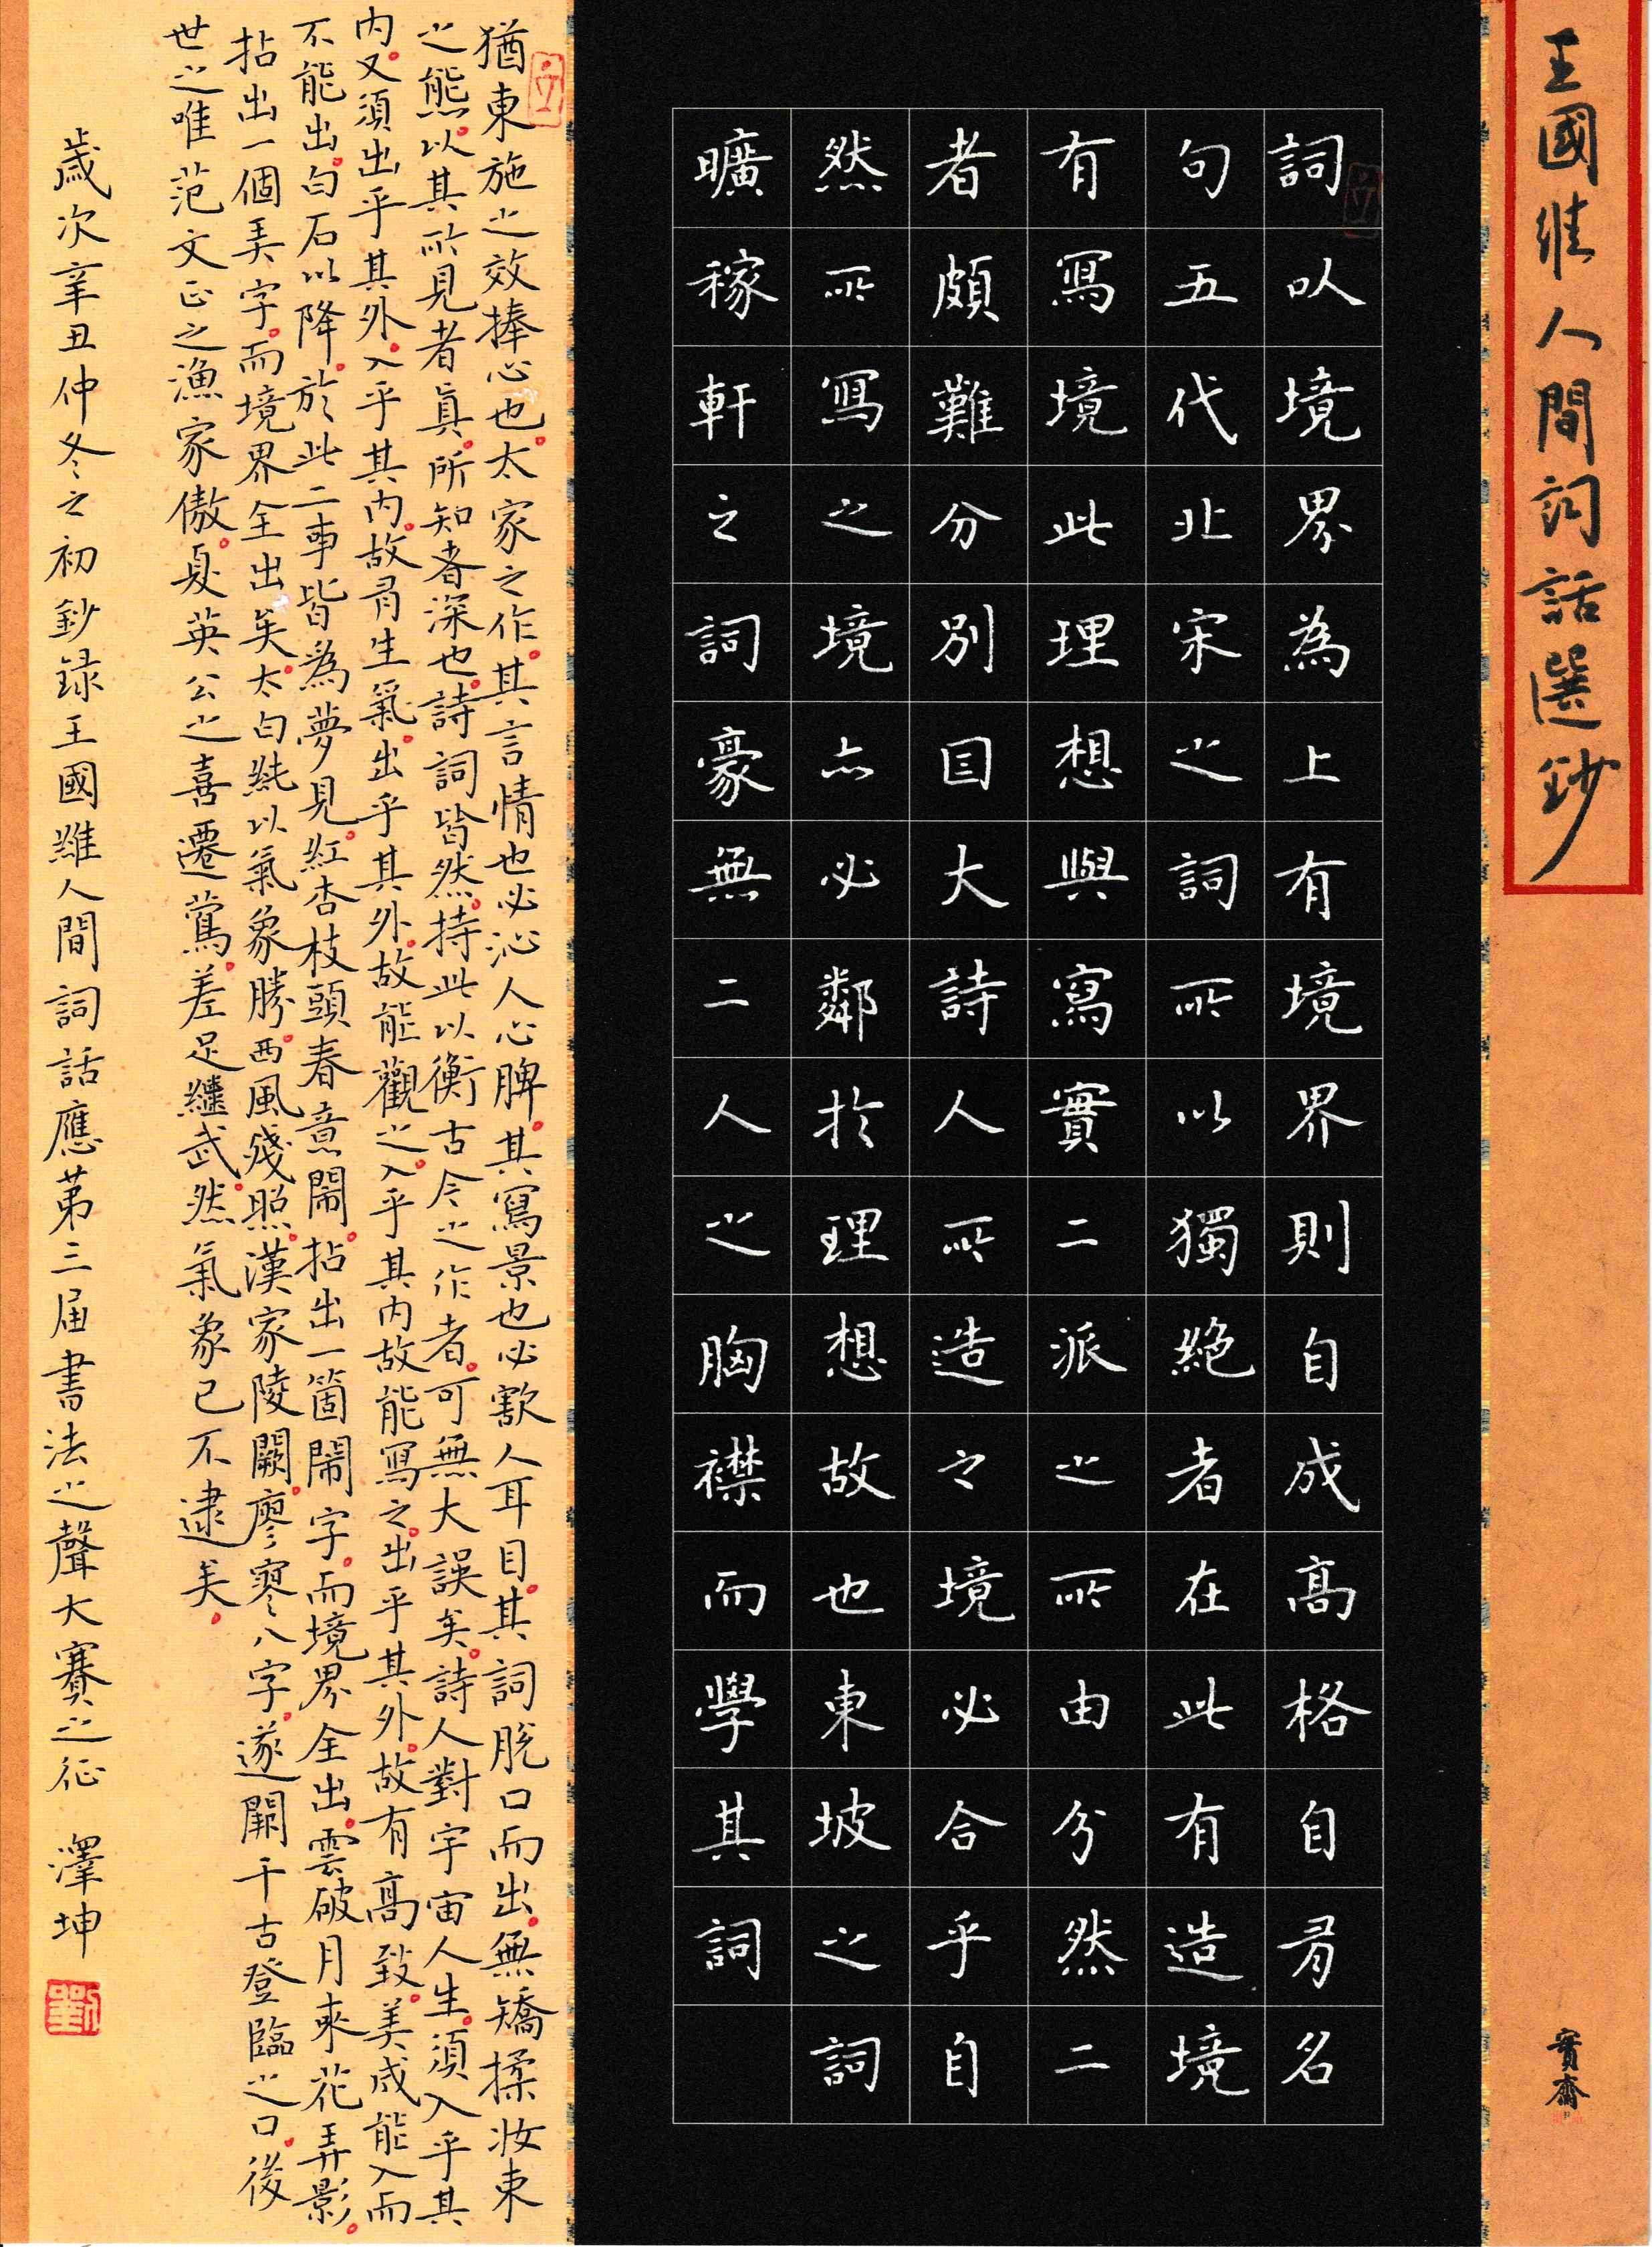 王國維人間詞話選鈔
實齋
詞以境界為上有境界則自成高格自有名
句五代北宋之詞所以獨絕者在此有造境
有寫境此理想與寫實二派之所由分然二
者頗難分別因大詩人所造之境必合乎自
然所寫之境亦必鄰於理想故也東坡之詞
曠稼軒之詞豪無二人之胸襟而學其詞
猶東施之效捧心也。太家之作。其言情也必沁人心脾。其寫景也必豁人耳目。其詞脫口而出。無矯揉妝束
之態。以其所見者真。所知者深也。詩詞皆然。持此以衡古今之作者。可無大誤矣。詩人對宇宙人生。須入乎其
內。又須出乎其外。入乎其內。故有生氣。出乎其外。故能觀之。入乎其內故能寫之。出乎其外。故有高致。美成能入而
不能出。白石以降。於此二事皆為夢見。紅杏枝頭春意鬧。拈出一箇鬧字。而境界全出。雲破月來花弄影。
拈出一個弄字。而境界全出矣。太白純以氣象勝。西風殘照。漢家陵闕。寥寥八字。遂關千古登臨之口。後
世之唯范文正之漁家傲。夏英公之喜遷鶯。差足繼武。然氣象已不逮矣。
歲次辛丑仲冬之初鈔錄王國維人間詞話應第三屆書法之聲大賽之征 澤坤
劉